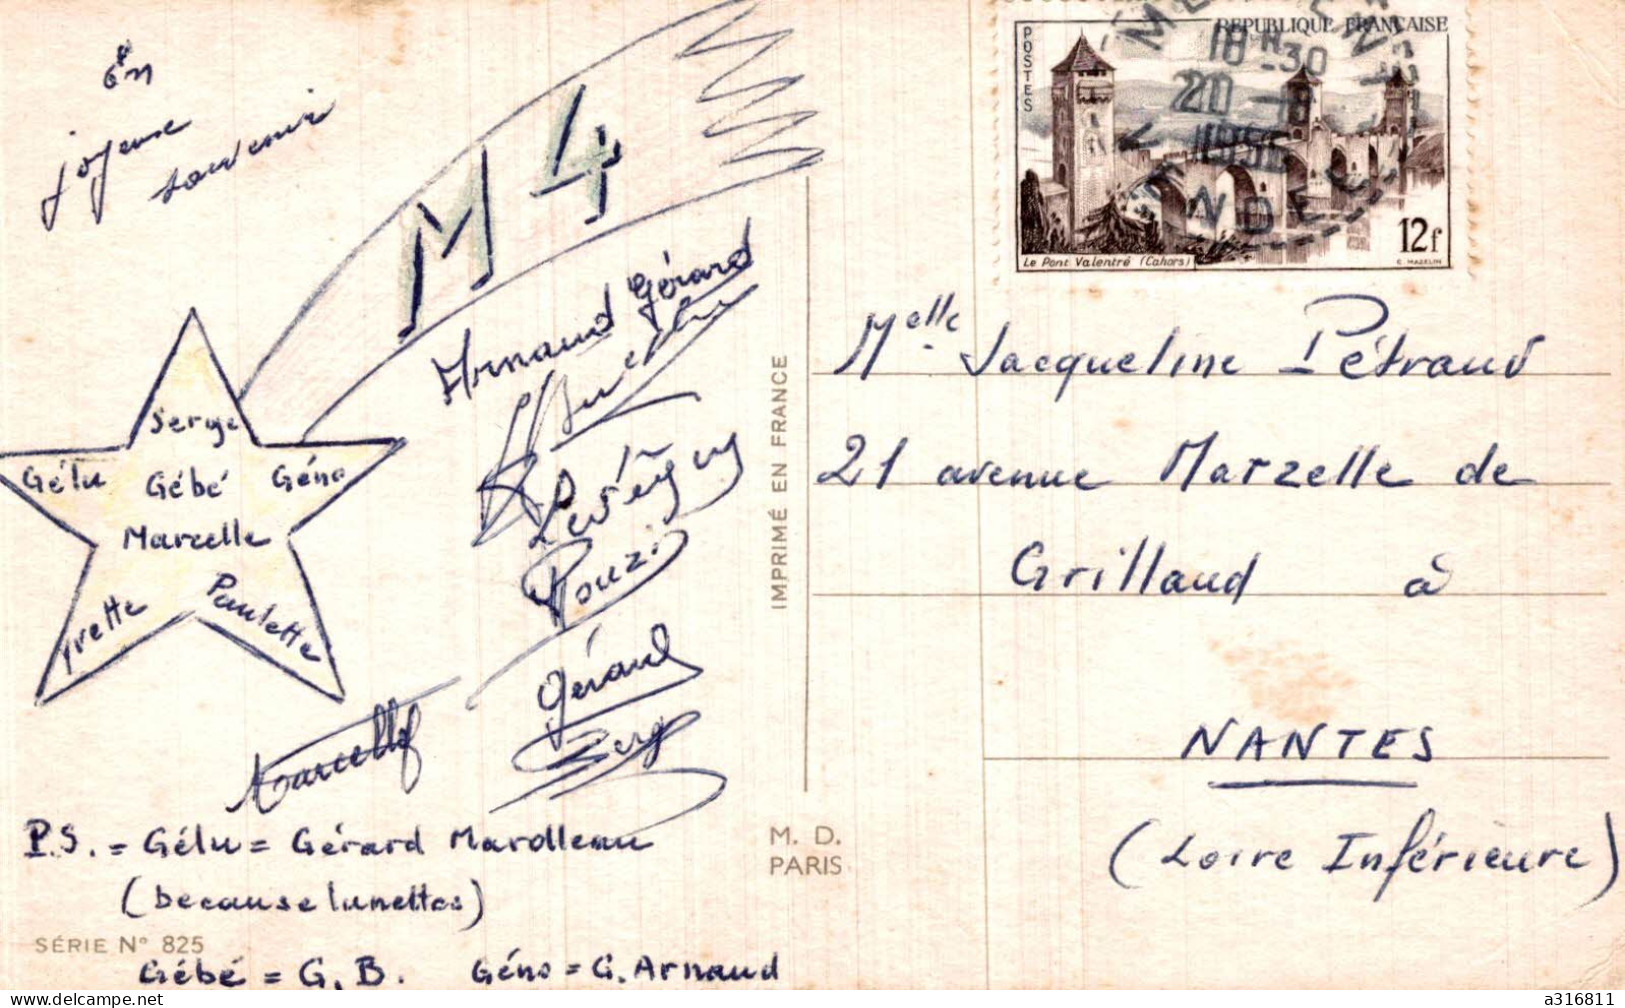 en
joyeux
souvenir
M4
Serge
Gélu Gébé Géno
Marcelle
Yvette Paulette
Arnaud Gérard
Pouzi
Gérard
Serge
Marcelle
P.S. = Gélu = Gérard Marolleau
(because lunettes)
SÉRIE N° 825
Gébé = G. B. Géno = G. Arnaud
IMPRIMÉ EN FRANCE
M. D.
PARIS
REPUBLIQUE FRANÇAISE
POSTES
18 H 30
20 -8
1956
Le Pont Valentré (Cahors)
12f
C. MAZELIN
Melle Jacqueline Pétraud
21 avenue Marzelle de
Grillaud à
NANTES
(Loire Inférieure)
a316811